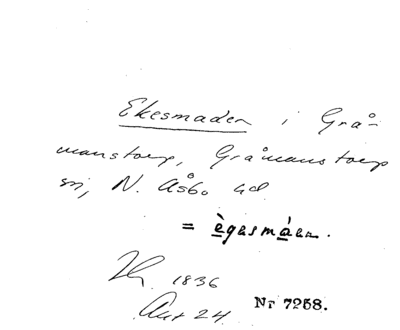 Ekesmaden i Grå-
manstorp, Gråmanstorp
sn, N. Åsbo hd.
= ègasmáen.
1836
Akt 24 Nr 7258.